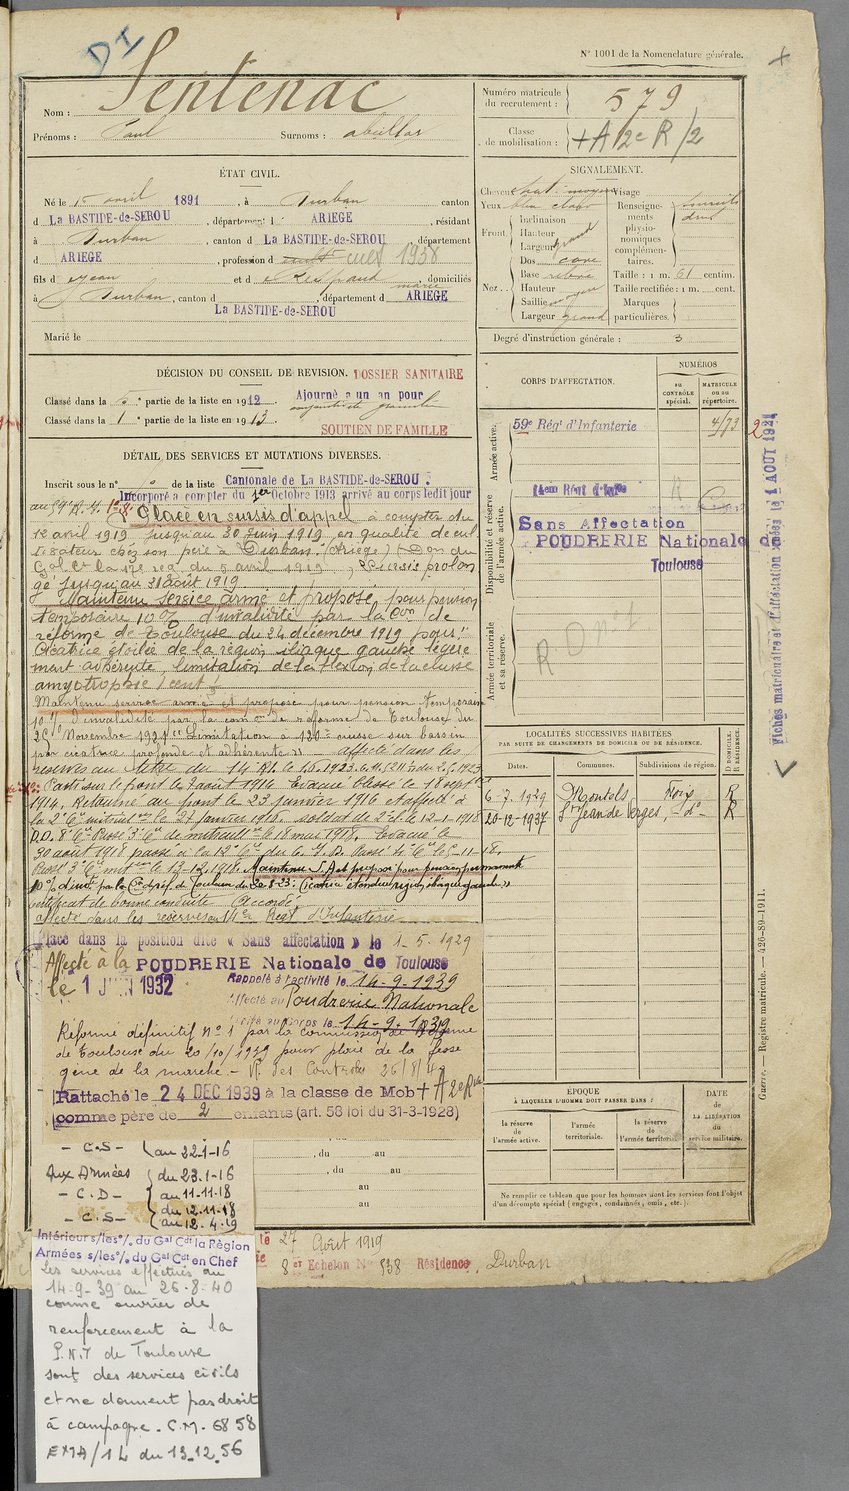 DI
N° 1001 de la Nomenclature générale.
Nom : Sentenac
Prénoms : Paul Surnoms :
Numéro matricule du recrutement : 579
Classe de mobilisation : +A/2e R/2
ÉTAT CIVIL.
Né le avril 1891, à Durban canton
d LA BASTIDE-de-SEROU, département d ARIEGE, résidant
à Durban, canton d LA BASTIDE-de-SEROU, département
d ARIEGE, profession d 1938
fils d Jean et d domiciliés
à Durban, canton d LA BASTIDE-de-SEROU, département d ARIEGE
Marié le
SIGNALEMENT.
Cheveux chat. Visage
Yeux bleu clair
Front. Inclinaison
Hauteur grand
Largeur
Nez. Dos cave
Base relevé
Hauteur
Saillie moyen
Largeur grand
Renseignements physionomiques complémentaires.
Taille : 1 m. 61 centim.
Taille rectifiée : 1 m. cent.
Marques particulières.
Degré d'instruction générale : 3
DÉCISION DU CONSEIL DE REVISION. DOSSIER SANITAIRE
Classé dans la 5e partie de la liste en 1912. Ajourné a un an pour
Classé dans la 1e partie de la liste en 1913.
SOUTIEN DE FAMILLE
DÉTAIL DES SERVICES ET MUTATIONS DIVERSES.
Inscrit sous le n° de la liste Cantonale de LA BASTIDE-de-SEROU.
Incorporé a compter du 1er Octobre 1913 arrivé au corps ledit jour
Placé en sursis d'appel à compter du
12 avril 1919 jusqu'au 30 juin 1919 en qualité de cul
tivateur chez son père à Durban (Ariège) Don du
Gal Ct la 17e reg du 5 avril 1919, Sursis prolon
gé jusqu'au 31 août 1919
Maintenu service armé et proposé pour pension
temporaire 10% d'invalidité par la Con de
réforme de Toulouse du 24 décembre 1919 pour :
Cicatrice étoilée de la région iliaque gauche légère
ment adhérente, limitation de la flexion de la cuisse
amyotrophie 1 cent ½
Maintenu service armé et proposé pour pension temporaire
10% d'invalidité par la comon de réforme de Toulouse du
Novembre 1921 "Limitation à 120° cuisse sur bassin
par cicatrice profonde et adhérente" affecté dans les
réserves au titre du 14e RI. le 1.6.1923
Parti sur le front le 7 août 1914 Evacué blessé le 18 sept
1914. Retourné au front le 23 janvier 1916 et affecté à
la 2e Cie mitrses le 27 janvier 1916. soldat de 2e cl. le 12-1-1918
D.O. 8e Cie Passé 3e Cie de mitrail le 18 mai 1918. Evacué le
30 août 1918 passé à la 12e Cie du C.I.D. Passé 4e Cie le 11-18,
Passé 3e Cie mitses le 13-12-1918. Maintenu S.A et proposé pour pension permanente
Certificat de bonne conduite Accordé
affecté dans les réserves au 14e Régt d'Infanterie
Placé dans la position dite « Sans affectation » le 1-5-1929
Affecté à la POUDRERIE Nationale de Toulouse
le 1 JUIN 1932 Rappelé à l'activité le 14-9-1939
Affecté au Poudrerie Nationale
Arrivé au Corps le 14-9-1939
Réformé définitif n° 1 par la commission de réforme
de Toulouse du 20/10/1939 pour plaie de la fesse
gène de la marche - V. des Controles 26/8/40
Rattaché le 24 DEC 1939 à la classe de Mob + A 2e Rve
comme père de 2 enfants (art. 58 loi du 31-3-1928)
CORPS D'AFFECTATION.
NUMÉROS
au CONTRÔLE spécial.
MATRICULE ou au répertoire.
Armée active.
59e Régt d'Infanterie 4/73
Disponibilité et réserve de l'armée active.
14em Régt d'Infie
Sans Affectation
POUDRERIE Nationale de
Toulouse
Armée territoriale et sa réserve.
R D n°1
Fiches matricule et d'affectation le 1 AOUT 1921
LOCALITÉS SUCCESSIVES HABITÉES
PAR SUITE DE CHANGEMENTS DE DOMICILE OU DE RÉSIDENCE.
Dates. Communes. Subdivisions de région. D DOMICILE. R RÉSIDENCE.
6-7.1929 Montels Foix R
20-12-1937 St Jean de Verges -do- R
Guerre. — Registre matricule. — 426-89-1911.
ÉPOQUE
À LAQUELLE L'HOMME DOIT PASSER DANS :
la réserve de l'armée active.
l'armée territoriale.
la réserve de l'armée territoriale.
DATE de LA LIBÉRATION du service militaire.
Ne remplir ce tableau que pour les hommes dont les services font l'objet
d'un décompte spécial (engagés, condamnés, omis, etc.).
, du au
, du au
au
au
- C.S - au 22-1-16
Aux Armées du 23.1-16
- C.D - au 11-11-18
du 12.11-18
- C.S - au 12-4.19
Intérieur s/les °/. du Gal Cdt la Région
Armées s/les °/. du Gal Cdt en Chef
Les services effectués du
14-9-39 au 26-8-40
comme ouvrier de
renforcement à la
P.N.T de Toulouse
sont des services civils
et ne donnent pas droit
à campagne. C.M. 6858
EMA/1L du 13.12.56
27 Août 1919
8er Echelon N° 938 Résidence Durban